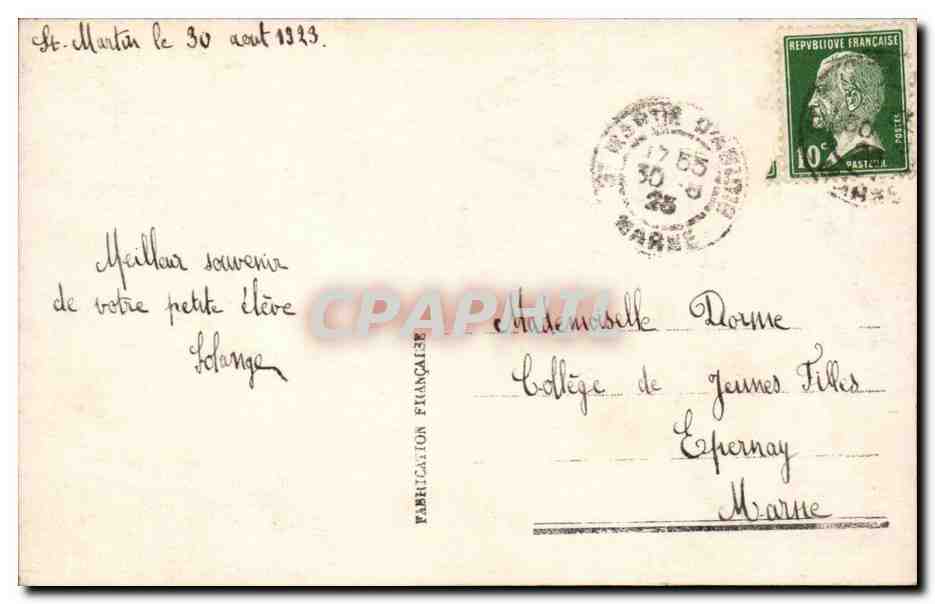 St. Martin le 30 aout 1923.
REPVBLIQUE FRANÇAISE
10c
POSTES
PASTEUR
17 55
30 - 8
23
MARNE
Meilleur souvenir
de votre petite élève
Solange
CPAPHIL
FABRICATION FRANÇAISE
Mademoiselle Dorme
Collège de Jeunes Filles
Epernay
Marne